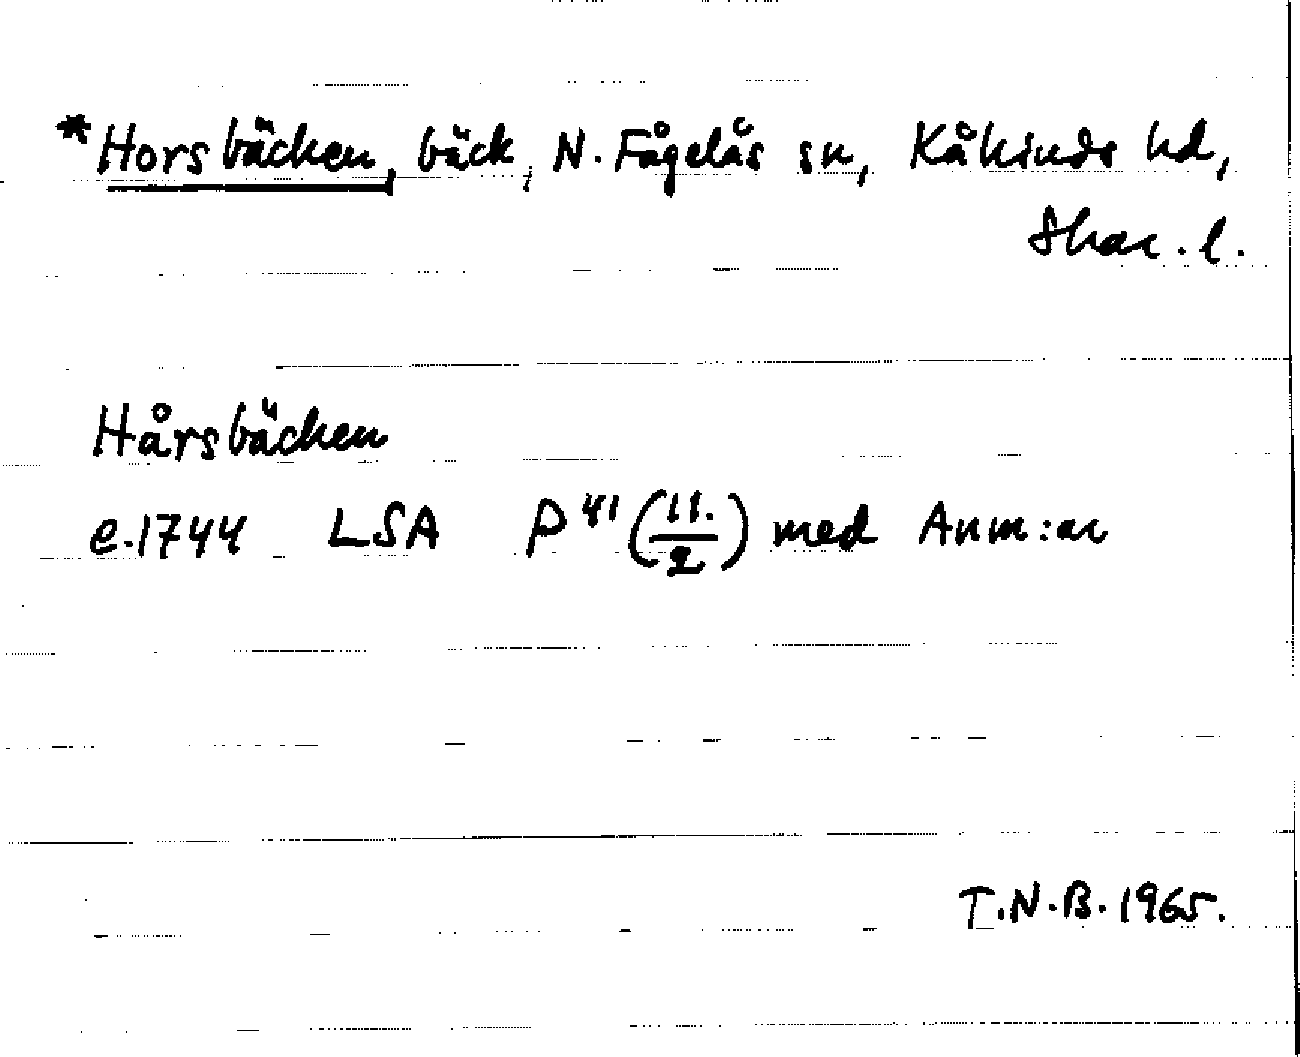 *Horsbäcken, bäck, N. Fågelås sn, Kåkinds hd,
Skar. l.
Hårsbäcken
e.1744 LSA P 41 (11./2) med Anm:ar
T.N.B. 1965.